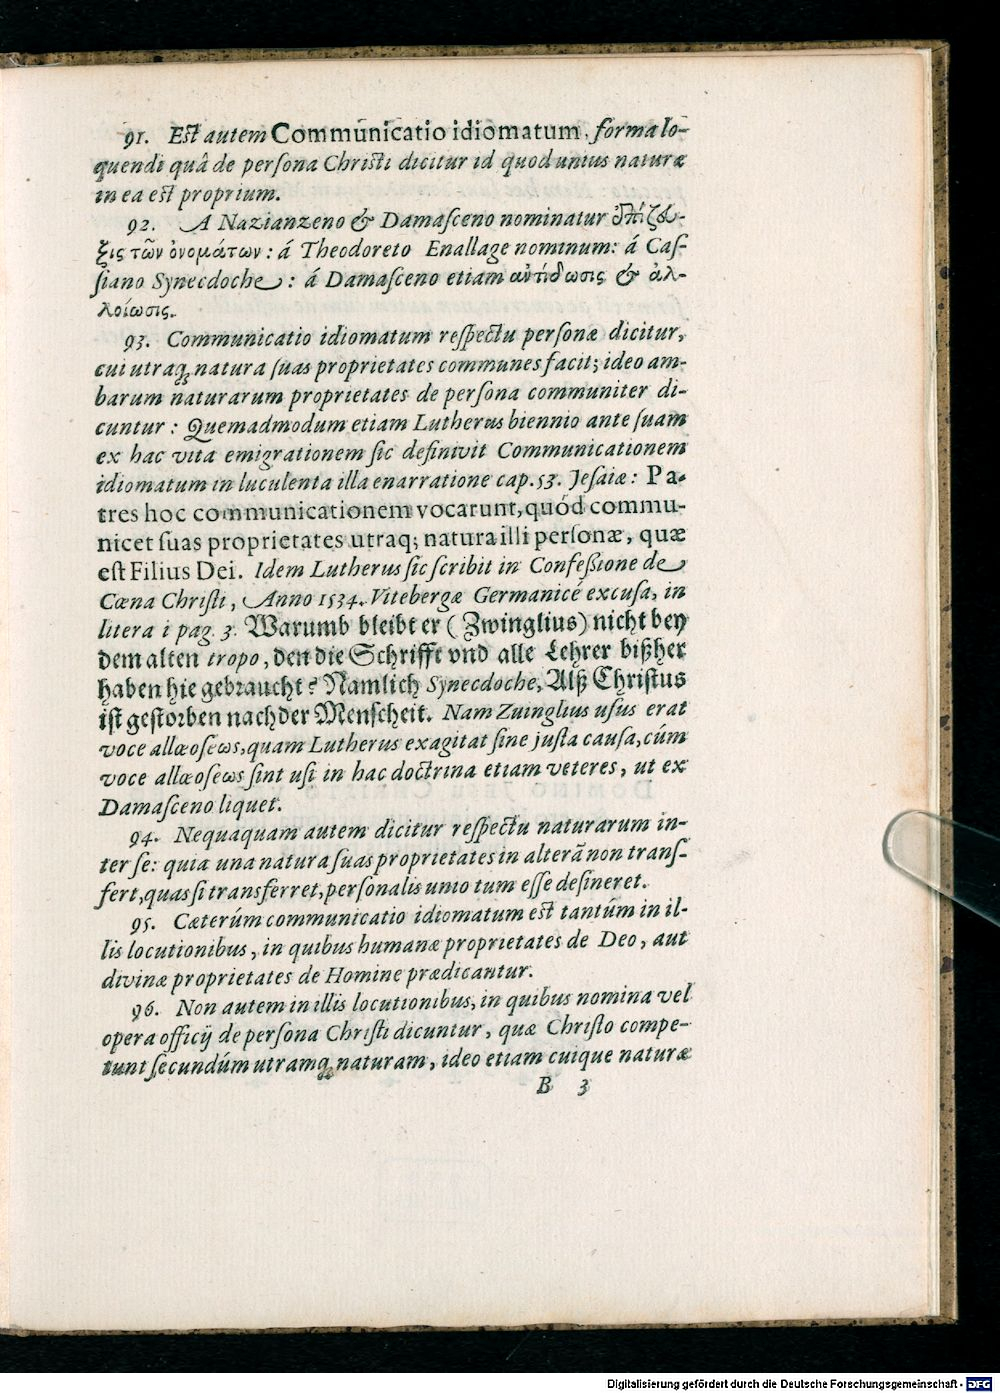 91. Est autem Communicatio idiomatum, forma lo-
quendi quâ de persona Christi dicitur id quod unius naturæ
in ea est proprium.
92. A Nazianzeno & Damasceno nominatur
ξις τῶν ὀνομάτων : á Theodoreto Enallage nominum: á Cas-
siano Synecdoche : á Damasceno etiam αντίδωσις & ἀλ-
λοίωσις.
93. Communicatio idiomatum respectu personæ dicitur,
cui utraq; natura suas proprietates communes facit; ideo am-
barum naturarum proprietates de persona communiter di-
cuntur : Quemadmodum etiam Lutherus biennio ante suam
ex hac vita emigrationem sic definivit Communicationem
idiomatum in luculenta illa enarratione cap. 53. Jesaiæ: Pa-
tres hoc communicationem vocarunt, quód commu-
nicet suas proprietates utraq; natura illi personæ, quæ
est Filius Dei. Idem Lutherus sic scribit in Confeßione de
Cœna Christi, Anno 1534. Vitebergæ Germanicé excusa, in
litera i pag. 3. Warumb bleibt er (Zwinglius) nicht bey
dem alten tropo, den die Schrifft vnd alle Lehrer bißher
haben hie gebraucht? Namlich Synecdoche, Alß Christus
ist gestorben nach der Menscheit. Nam Zuinglius usus erat
voce allœoseωs, quam Lutherus exagitat sine justa causa, cúm
voce allœoseωs sint usi in hac doctrina etiam veteres, ut ex
Damasceno liquet.
94. Nequaquam autem dicitur respectu naturarum in-
ter se: quia una natura suas proprietates in alterã non trans-
fert, quas si transferret, personalis unio tum esse desineret.
95. Cæterúm communicatio idiomatum est tantúm in il-
lis locutionibus, in quibus humanæ proprietates de Deo, aut
divinæ proprietates de Homine prædicantur.
96. Non autem in illis locutionibus, in quibus nomina vel
opera officij de persona Christi dicuntur, quæ Christo compe-
tunt secundúm utramq; naturam, ideo etiam cuique naturæ
B 3
Digitalisierung gefördert durch die Deutsche Forschungsgemeinschaft - DFG